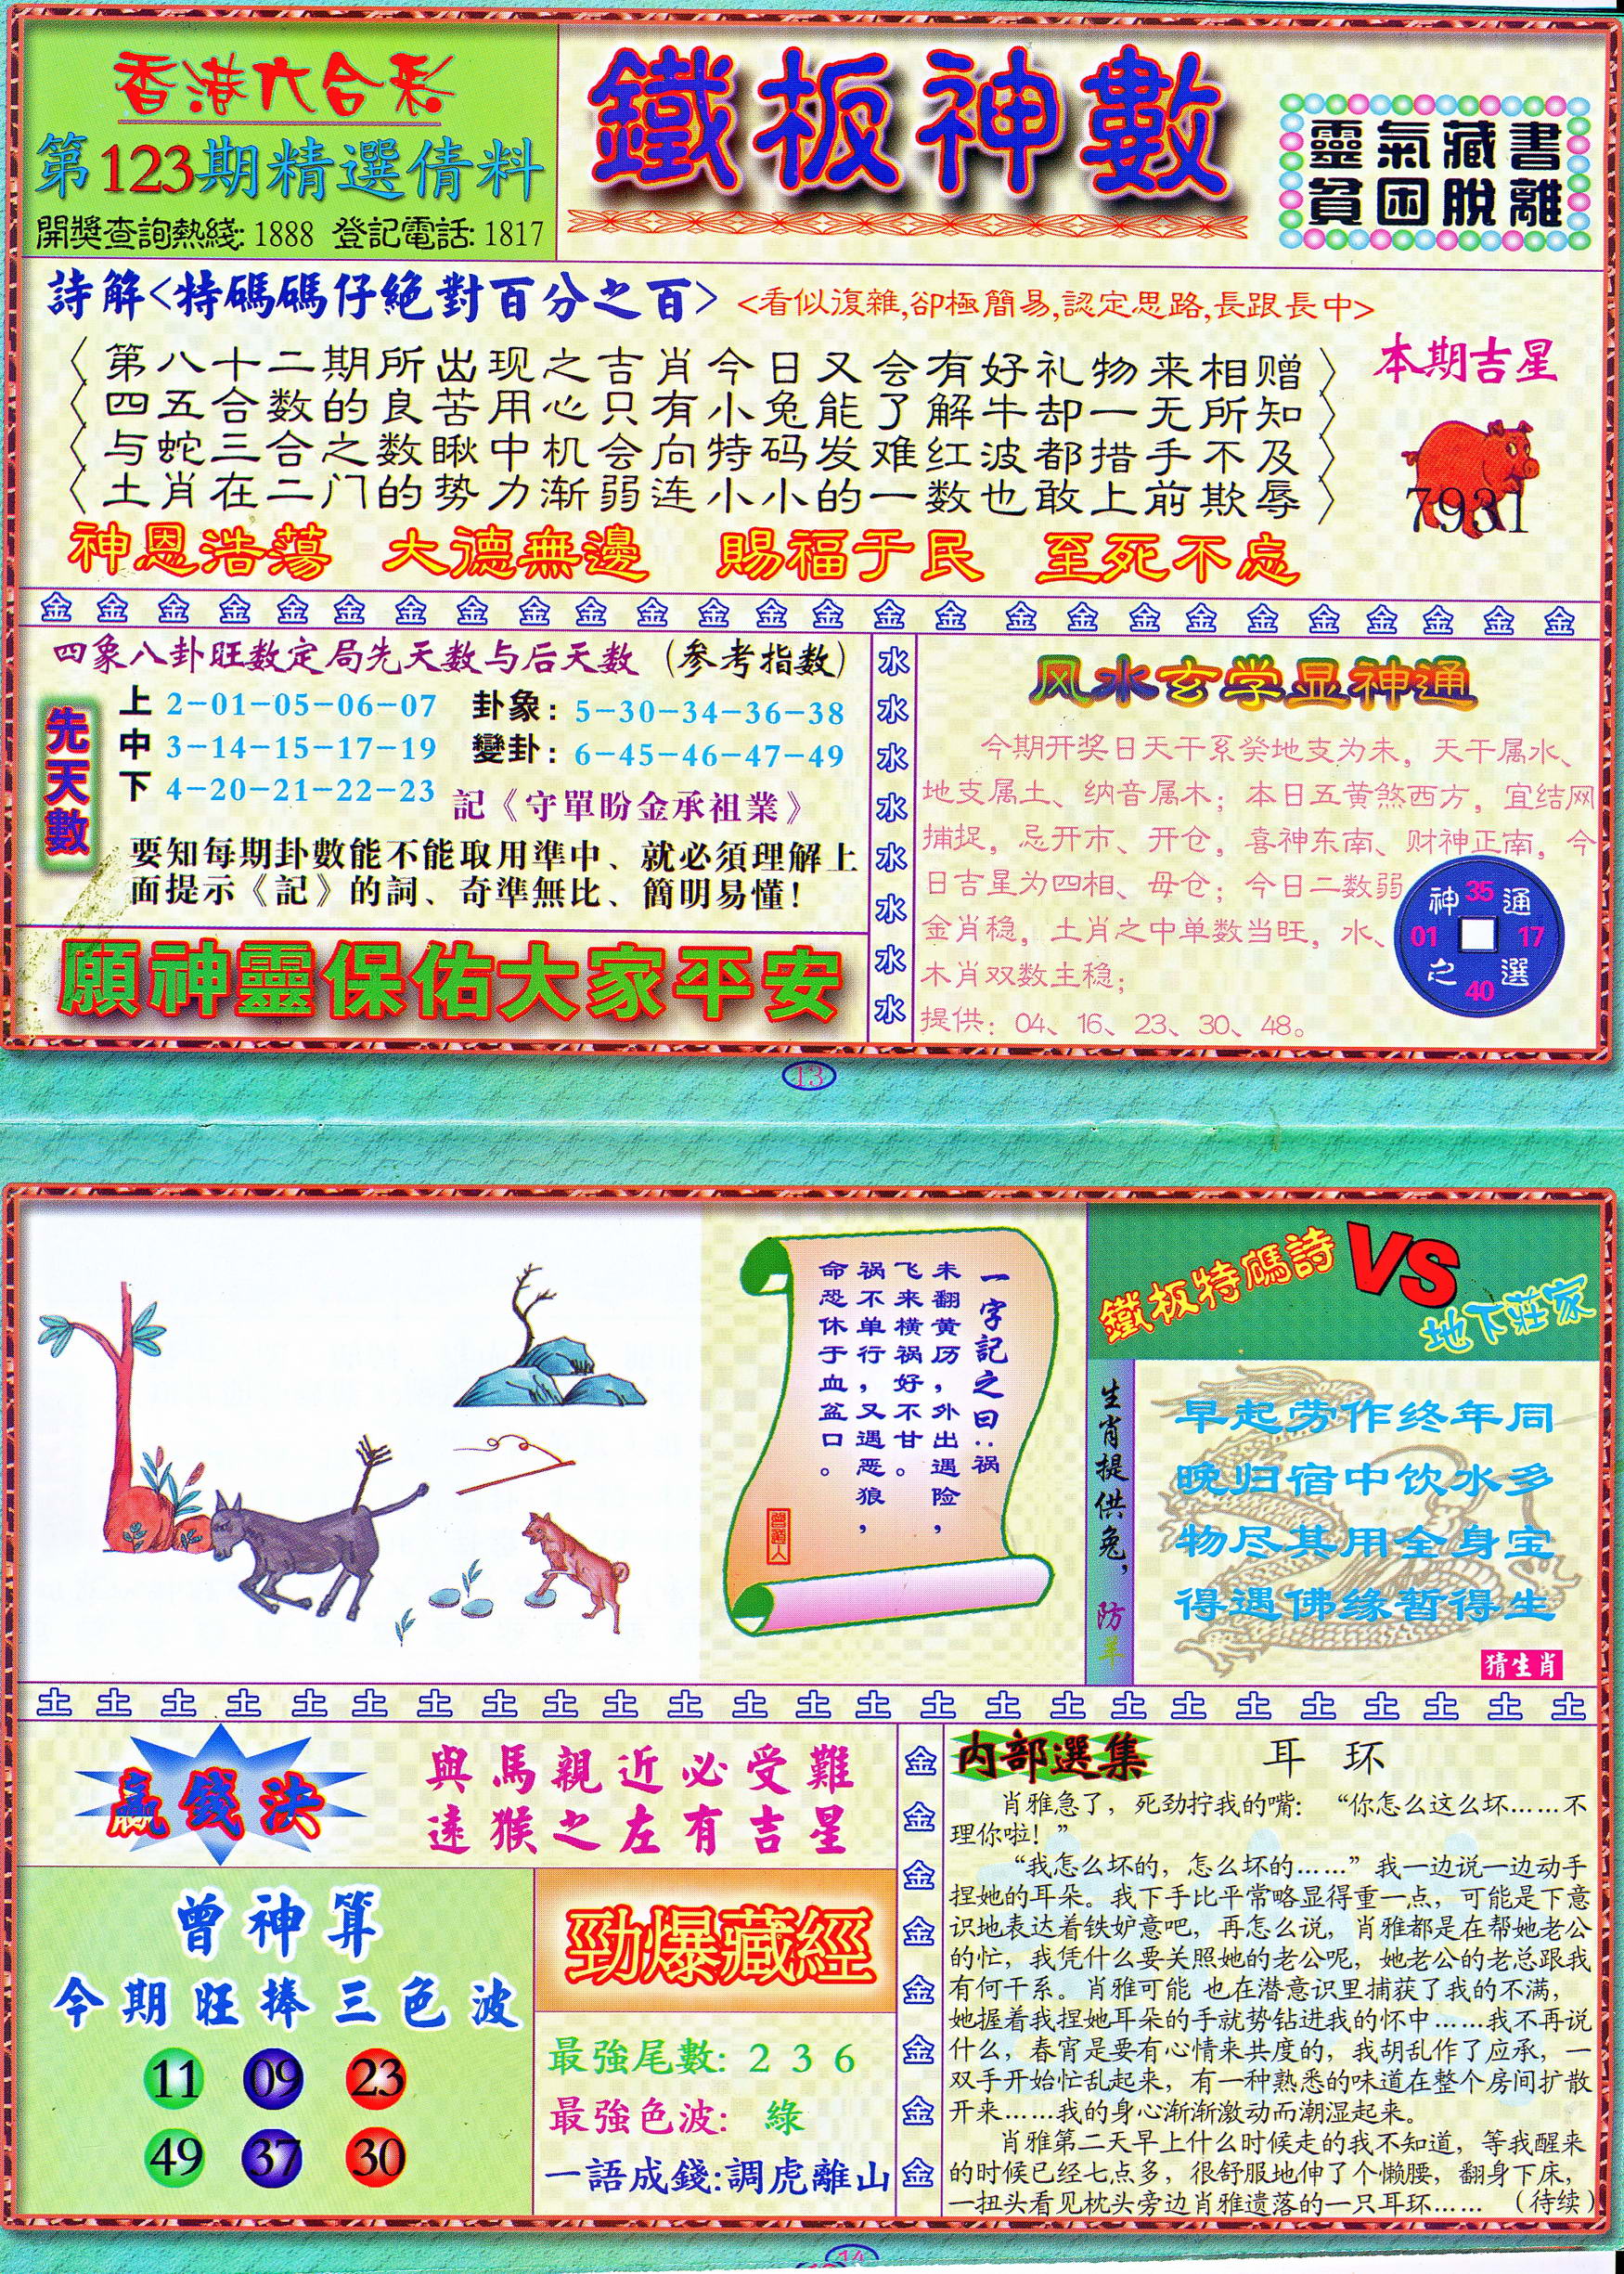 香港六合彩
第123期精選倩料
開獎查詢熱綫:1888 登記電話:1817
鐵板神數
靈氣藏書
貧困脫離
詩解<特碼碼仔絕對百分之百>
<看似復雜,卻極簡易,認定思路,長跟長中>
第八十二期所出现之吉肖今日又会有好礼物来相赠
四五合数的良苦用心只有小兔能了解牛却一无所知
与蛇三合之数瞅中机会向特码发难红波都措手不及
土肖在二门的势力渐弱连小小的一数也敢上前欺辱
本期吉星
7931
神恩浩蕩 大德無邊 賜福于民 至死不忘
金金金金金金金金金金金金金金金金金金金金金金金金金金
四象八卦旺数定局先天数与后天数(参考指数)
先天數
上 2-01-05-06-07
中 3-14-15-17-19
下 4-20-21-22-23
卦象: 5-30-34-36-38
變卦: 6-45-46-47-49
記《守單盼金承祖業》
要知每期卦數能不能取用準中、就必須理解上
面提示《記》的詞、奇準無比、簡明易懂!
願神靈保佑大家平安
水水水水水水水水
风水玄学显神通
今期开奖日天干系癸地支为未，天干属水、
地支属土、纳音属木；本日五黄煞西方，宜结网
捕捉，忌开市、开仓，喜神东南、财神正南，今
日吉星为四相、母仓；今日二数弱
金肖稳，土肖之中单数当旺，水、
木肖双数主稳；
提供：04、16、23、30、48。
神 35 通
01 17
之 40 選
13
一字記之曰:祸
未翻黄历，外出遇险，
飞来横祸好不甘。
祸不单行，又遇恶狼，
命恐休于血盆口。
曾道人
鐵板特碼詩
VS
地下莊家
生肖提供兔，防羊
早起劳作终年同
晚归宿中饮水多
物尽其用全身宝
得遇佛缘暂得生
猜生肖
土土土土土土土土土土土土土土土土土土土土土土土土土
贏錢決
與馬親近必受難
遠猴之左有吉星
曾神算
今期旺捧三色波
11 09 23
49 37 30
勁爆藏經
最強尾數: 2 3 6
最強色波: 綠
一語成錢:調虎離山
金金金金金金金金
内部選集
耳 环
肖雅急了，死劲拧我的嘴：“你怎么这么坏……不
理你啦！”
“我怎么坏的，怎么坏的……”我一边说一边动手
捏她的耳朵。我下手比平常略显得重一点，可能是下意
识地表达着铁妒意吧，再怎么说，肖雅都是在帮她老公
的忙，我凭什么要关照她的老公呢，她老公的老总跟我
有何干系。肖雅可能 也在潜意识里捕获了我的不满，
她握着我捏她耳朵的手就势钻进我的怀中……我不再说
什么，春宵是要有心情来共度的，我胡乱作了应承，一
双手开始忙乱起来，有一种熟悉的味道在整个房间扩散
开来……我的身心渐渐激动而潮湿起来。
肖雅第二天早上什么时候走的我不知道，等我醒来
的时候已经七点多，很舒服地伸了个懒腰，翻身下床，
一扭头看见枕头旁边肖雅遗落的一只耳环…… （待续）
14